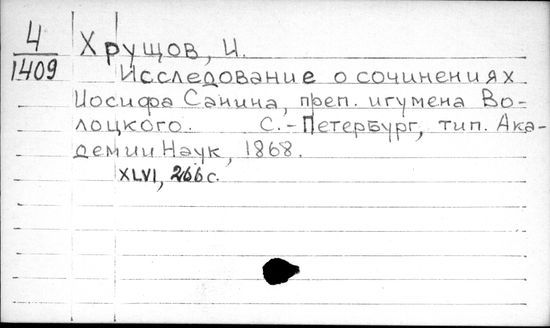 4
1409
Хрущов, И.
Исследование о сочинениях
Иосифа Санина, преп. игумена Во-
лоцкого. С.-Петербург, тип. Ака-
демии Наук, 1868.
XLVI, 266 с.